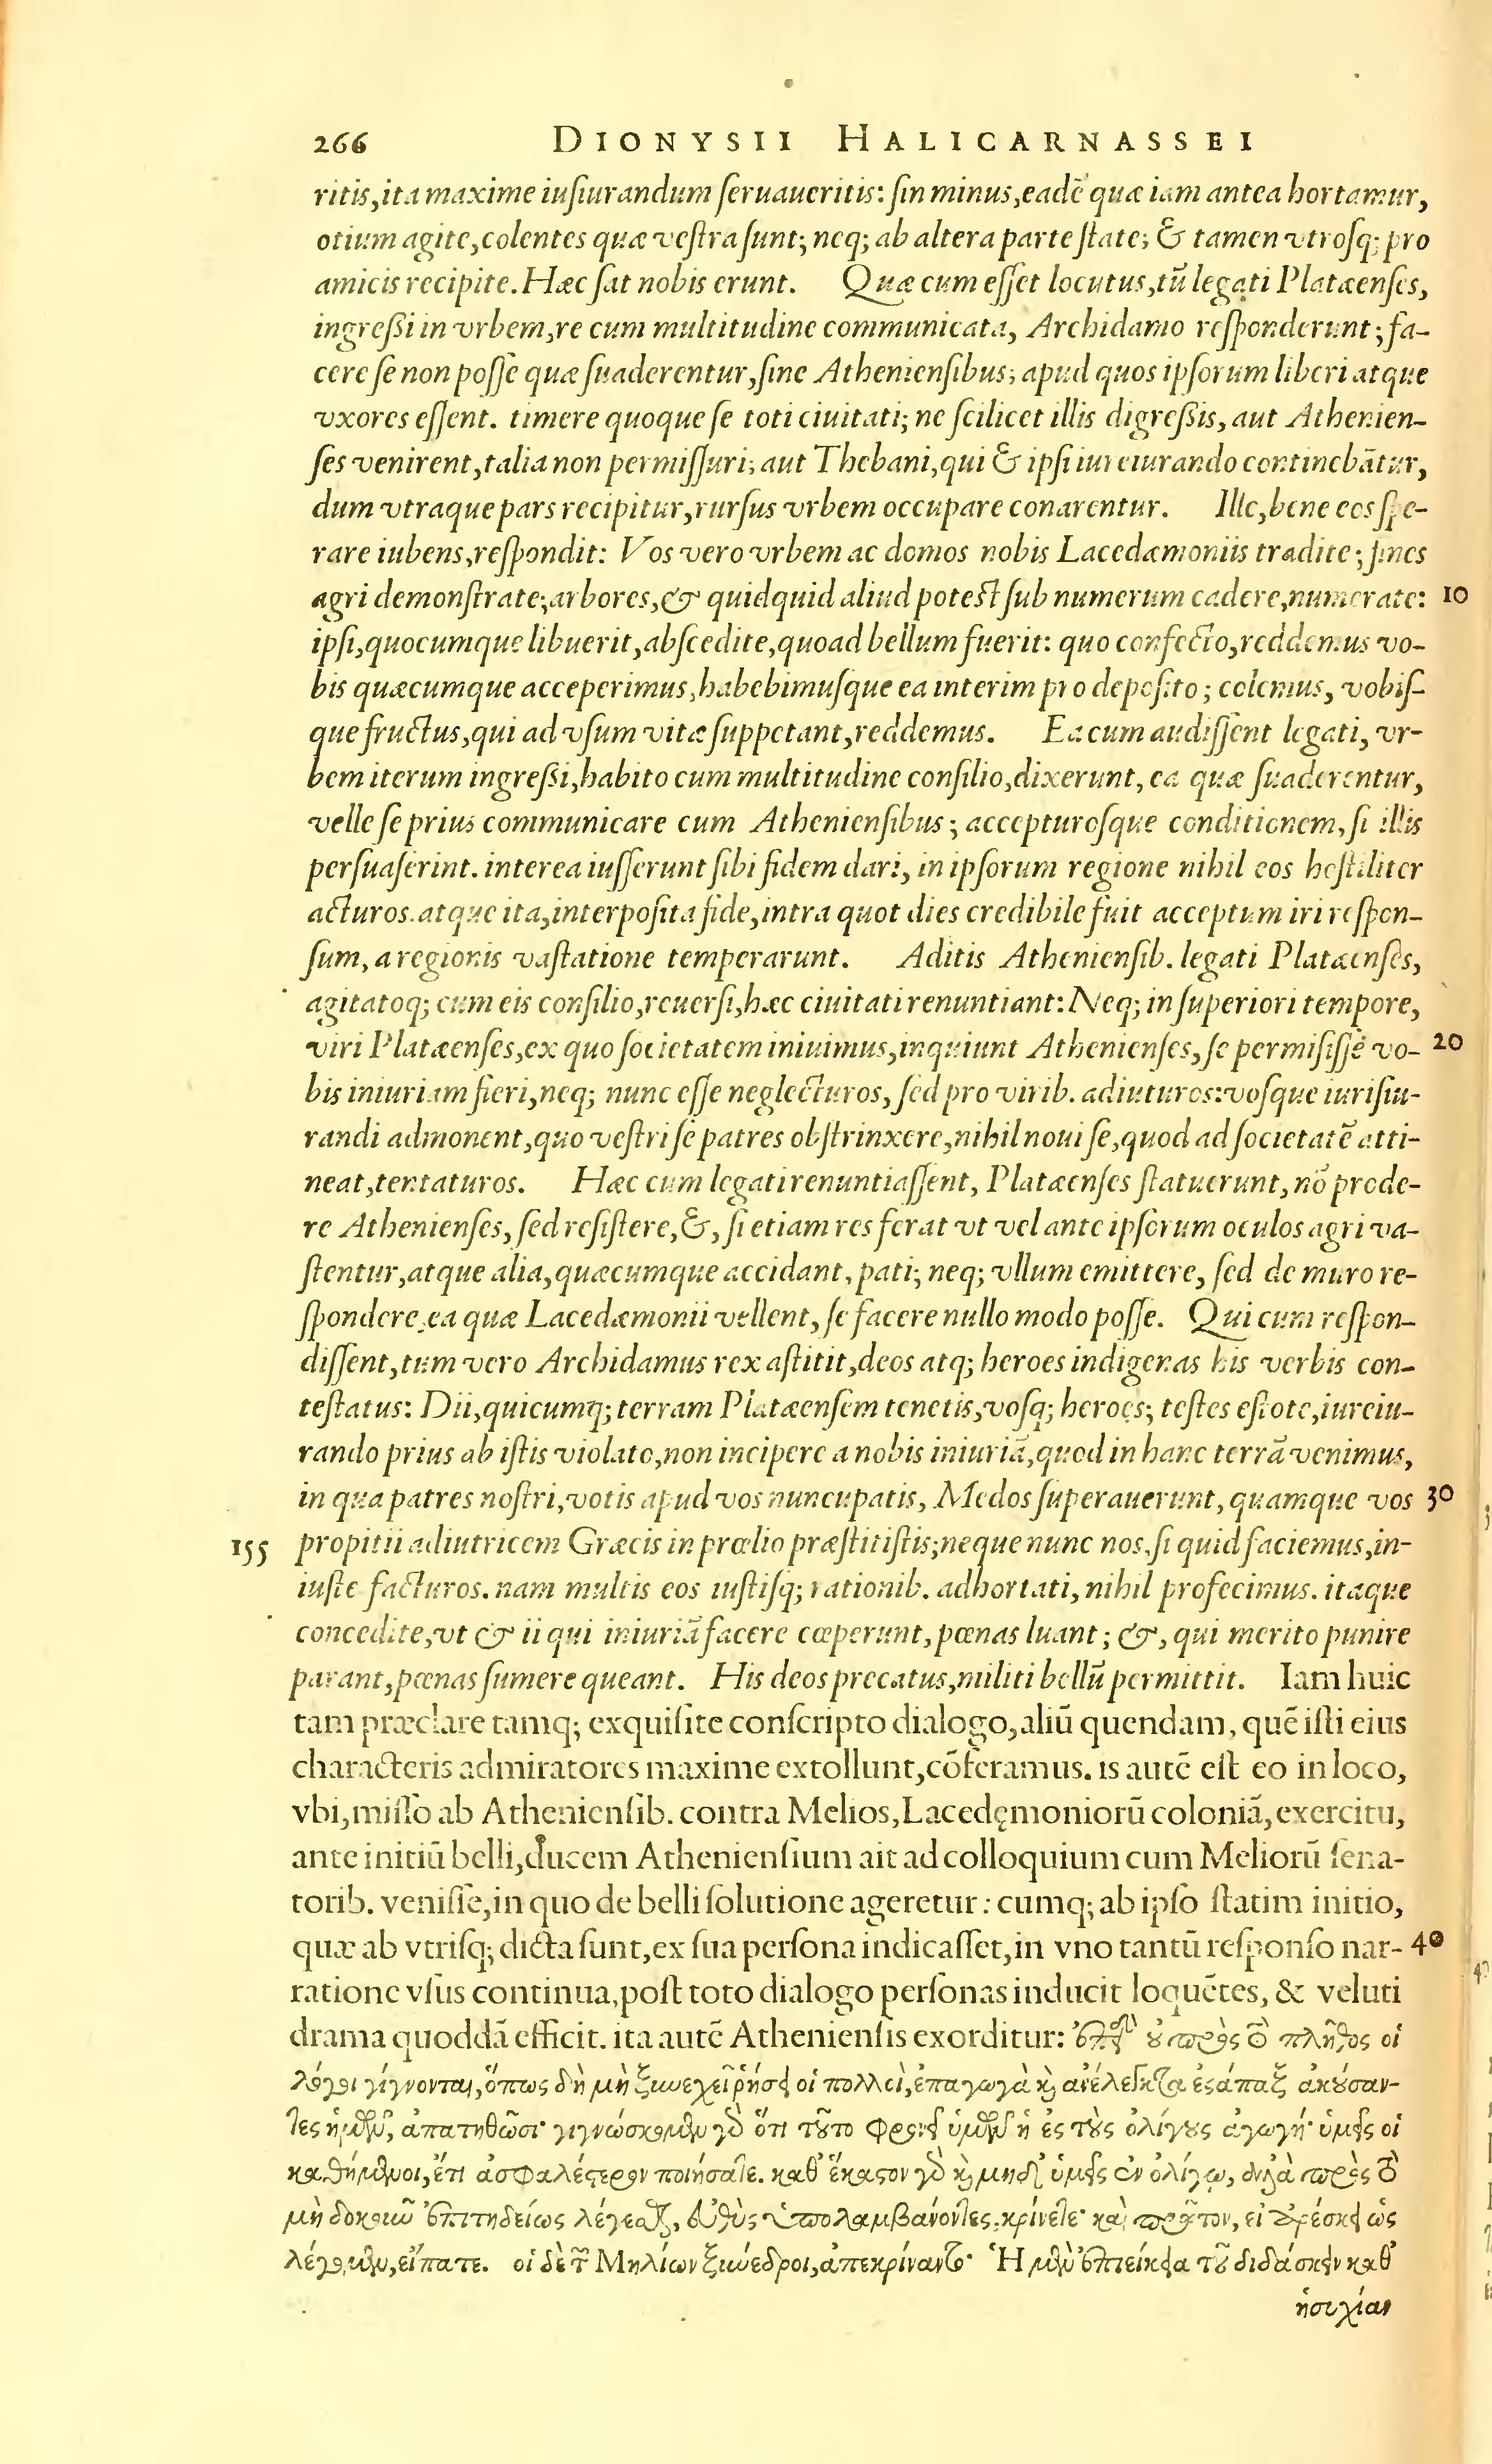 266 DIONYSII HALICARNASSEI
ritis,ita maxime iuſiurandum ſeruaueritis: ſin minus,eadē quæ iam antea hortamur,
otium agite,colentes quæ veſtra ſunt; neq; ab altera parte ſtate; & tamen vtroſq; pro
amicis recipite. Hæc ſat nobis erunt. Quæ cum eſſet locutus,tū legati Platæenſes,
ingreſſi in vrbem,re cum multitudine communicata, Archidamo reſponderunt; fa-
cere ſe non poſſe quæ ſuaderentur,ſine Athenienſibus; apud quos ipſorum liberi atque
vxores eſſent. timere quoque ſe toti ciuitati; ne ſcilicet illis digreſſis, aut Athenien-
ſes venirent,talia non permiſſuri; aut Thebani,qui & ipſi iureiurando continebātur,
dum vtraque pars recipitur,rurſus vrbem occupare conarentur. Ille,bene eos ſpe-
rare iubens,reſpondit: Vos vero vrbem ac domos nobis Lacedæmoniis tradite; fines
agri demonſtrate; arbores,& quidquid aliud poteſt ſub numerum cadere,numerate: 10
ipſi,quocumque libuerit,abſcedite,quoad bellum fuerit: quo confecto,reddemus vo-
bis quæcumque acceperimus,habebimuſque ea interim pro depoſito; colemus, vobiſ-
que fructus,qui ad vſum vitæ ſuppetant,reddemus. Ea cum audiſſent legati, vr-
bem iterum ingreſſi,habito cum multitudine conſilio,dixerunt, ea quæ ſuaderentur,
velle ſe prius communicare cum Athenienſibus; accepturoſque conditionem,ſi illis
perſuaſerint. interea iuſſerunt ſibi fidem dari, in ipſorum regione nihil eos hoſtiliter
acturos. atque ita,interpoſita fide,intra quot dies credibile fuit acceptum iri reſpon-
ſum, a regionis vaſtatione temperarunt. Aditis Athenienſib. legati Platæenſes,
agitatoq; cum eis conſilio,reuerſi,hæc ciuitati renuntiant: Neq; in ſuperiori tempore,
viri Platæenſes,ex quo ſocietatem iniuimus,inquiunt Athenienſes,ſe permiſiſſe vo- 20
bis iniuriam fieri,neq; nunc eſſe neglecturos, ſed pro virib. adiuturos: voſque iuriſiu-
randi admonent,quo veſtri ſe patres obſtrinxere,nihil noui ſe,quod ad ſocietatē atti-
neat,tentaturos. Hæc cum legati renuntiaſſent, Platæenſes ſtatuerunt, nō prode-
re Athenienſes, ſed reſiſtere,&, ſi etiam res ferat vt vel ante ipſorum oculos agri va-
ſtentur,atque alia,quæcumque accidant, pati; neq; vllum emittere, ſed de muro re-
ſpondere,ea quæ Lacedæmonii vellent, ſe facere nullo modo poſſe. Qui cum reſpon-
diſſent,tum vero Archidamus rex aſtitit,deos atq; heroes indigenas his verbis con-
teſtatus: Dii,quicumq; terram Platæenſem tenetis,voſq; heroes; teſtes eſtote,iureiu-
rando prius ab iſtis violato,non incipere a nobis iniuriā,quod in hanc terrā venimus,
in qua patres noſtri,votis apud vos nuncupatis, Medos ſuperauerunt, quamque vos 30
155 propitii adiutricem Græcis in prœlio præſtitiſtis;neque nunc nos,ſi quid faciemus,in-
iuſte facturos. nam multis eos iuſtiſq; rationib. adhortati, nihil profecimus. itaque
concedite,vt & ii qui iniuriā facere cœperunt, pœnas luant; &, qui merito punire
parant,pœnas ſumere queant. His deos precatus,militi bellū permittit. Iam huic
tam præclare tamq; exquiſite conſcripto dialogo,aliū quendam, quē iſti eius
characteris admiratores maxime extollunt,cōferamus. is autē eſt eo in loco,
vbi,miſſo ab Athenienſib. contra Melios,Lacedęmoniorū coloniā, exercitu,
ante initiū belli,ducem Athenienſium ait ad colloquium cum Meliorū ſena-
torib. veniſſe,in quo de belli ſolutione ageretur: cumq; ab ipſo ſtatim initio,
quæ ab vtriſq; dicta ſunt,ex ſua perſona indicaſſet,in vno tantū reſponſo nar- 40
ratione vſus continua,poſt toto dialogo perſonas inducit loquētes, & veluti
drama quoddā efficit. ita autē Athenienſis exorditur: ἐπειδὴ οὐ πρὸς τὸ πλῆθος οἱ
λόγοι γίγνονται,ὅπως δὴ μὴ ξυνεχεῖ ῥήσει οἱ πολλοὶ,ἐπαγωγὰ καὶ ἀνέλεγκτα ἐσάπαξ ἀκούσαν-
τες ἡμῶν, ἀπατηθῶσι· γιγνώσκομεν γὰρ ὅτι τοῦτο φρονεῖ ὑμῶν ἡ ἐς τοὺς ὀλίγους ἀγωγή· ὑμεῖς οἱ
καθήμενοι,ἔτι ἀσφαλέστερον ποιήσατε. καθ᾽ ἕκαστον γὰρ καὶ μηδ᾽ ὑμεῖς ἐν ὀλίγῳ, ἀλλὰ πρὸς τὸ
μὴ δοκοῦν ἐπιτηδείως λέγεσθαι, εὐθὺς ὑπολαμβάνοντες,κρίνετε· καὶ πρῶτον, εἰ ἀρέσκει ὡς
λέγομεν,εἴπατε. οἱ δὲ τῶν Μηλίων ξύνεδροι,ἀπεκρίναντο· Ἡ μὲν ἐπιείκεια τοῦ διδάσκειν καθ᾽
ἡσυχίαν